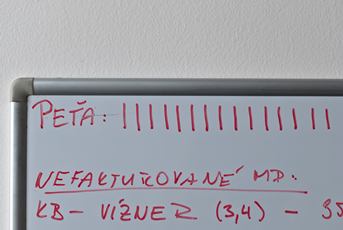 PEŤA: ||||||||||||||||
NEFAKTUROVANÉ MD:
KB - VÍZNER (3,4) - 35